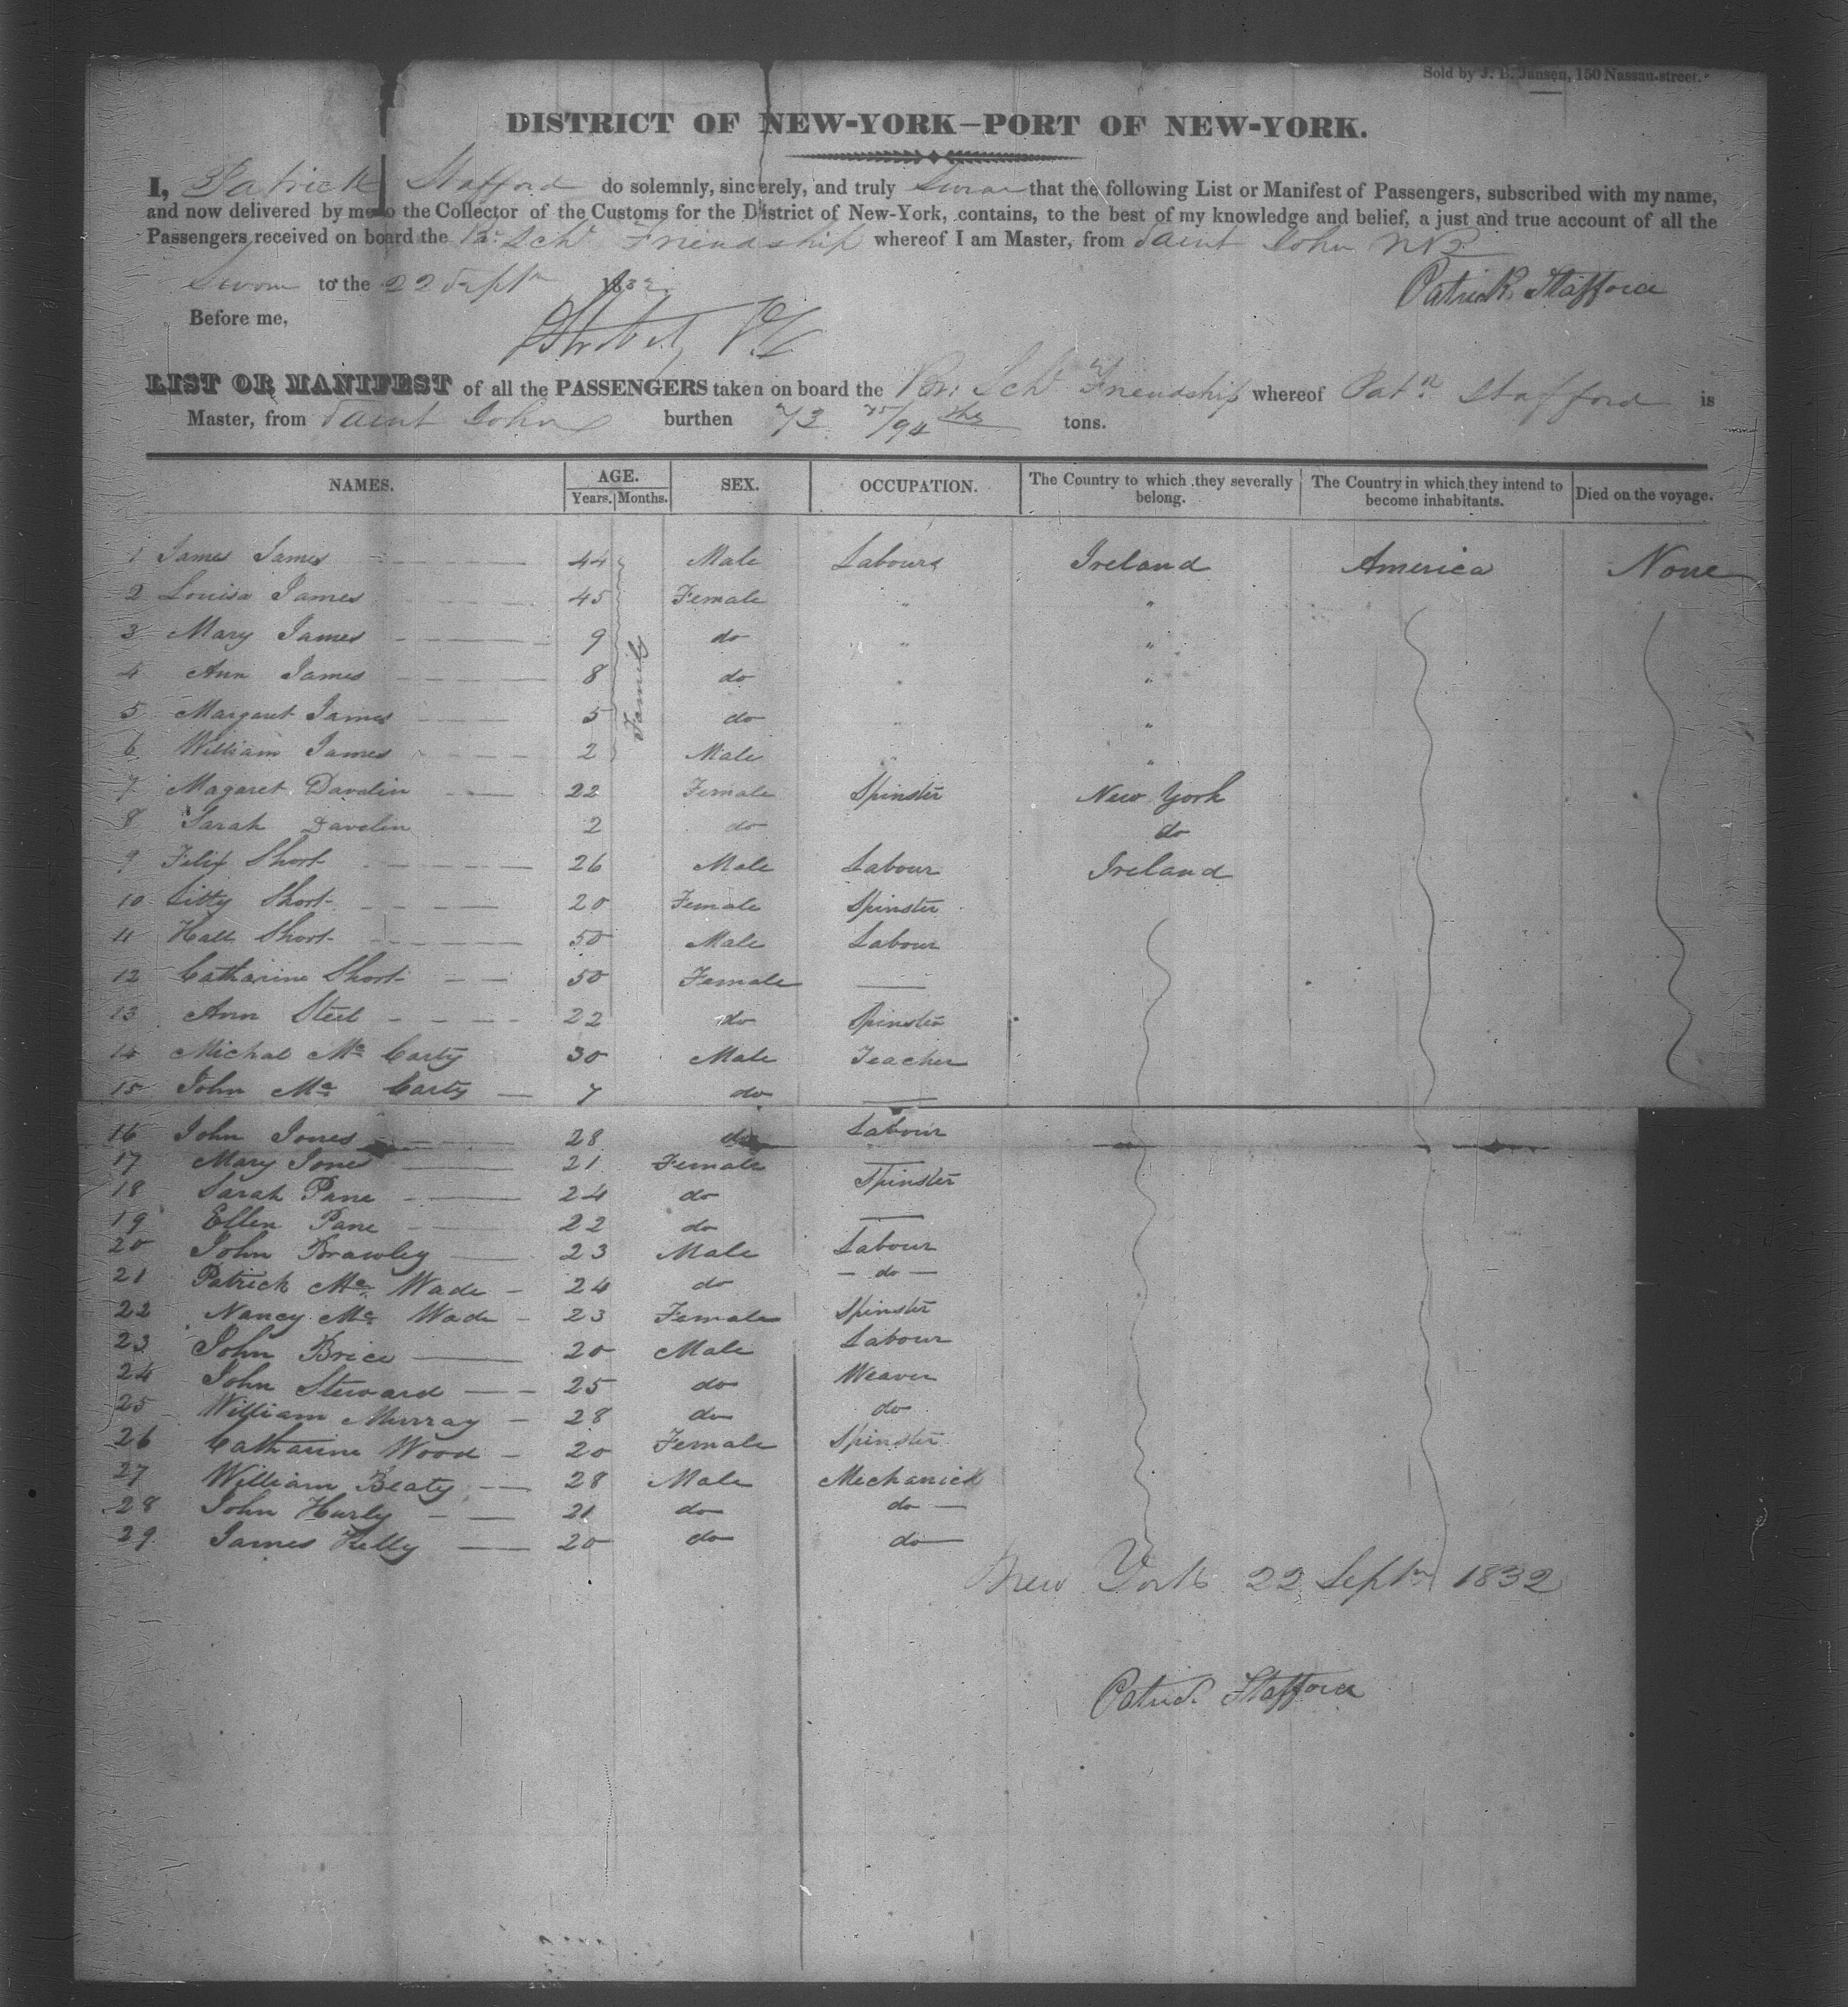 Sold by J. B. Jansen, 150 Nassau-street.
DISTRICT OF NEW-YORK—PORT OF NEW-YORK.
I, Patrick Stafford do solemnly, sincerely, and truly Swear that the following List or Manifest of Passengers, subscribed with my name,
and now delivered by me to the Collector of the Customs for the District of New-York, contains, to the best of my knowledge and belief, a just and true account of all the
Passengers received on board the Br. Schr Friendship whereof I am Master, from Saint John NB
Sworn to the 22 Septr 1832 Patrick Stafford
Before me,
LIST OR MANIFEST of all the PASSENGERS taken on board the Br. Schr Friendship whereof Patk Stafford is
Master, from Saint John burthen 73 75/94ths tons.
NAMES. AGE. SEX. OCCUPATION. The Country to which they severally belong. The Country in which they intend to become inhabitants. Died on the voyage.
Years. Months.
1 James James 44 Male Labourer Ireland America None
2 Louisa James 45 Female " "
3 Mary James 9 do " "
4 Ann James 8 do " "
5 Margaret James 5 do " "
6 William James 2 Male "
Family
7 Magaret Davelin 22 Female Spinster New York
8 Sarah Davelin 2 do do
9 Felix Short 26 Male Labour Ireland
10 Litty Short 20 Female Spinster
11 Hall Short 50 Male Labour
12 Catharine Short 50 Female —
13 Ann Steel 22 do Spinster
14 Michal Mc Carty 30 Male Teacher
15 John Mc Carty 7 do —
16 John Jones 28 do Labour
17 Mary Jones 21 Female —
18 Sarah Pane 24 do Spinster
19 Ellen Pane 22 do —
20 John Brawley 23 Male Labour
21 Patrick Mc Wade 24 do — do —
22 Nancy Mc Wade 23 Female Spinster
23 John Brice 20 Male Labour
24 John Steward 25 do Weaver
25 William Murray 28 do do
26 Catharine Wood 20 Female Spinster
27 William Beaty 28 Male Mechanick
28 John Hurly 21 do do
29 James Kelly 20 do do
New York 22 Septr 1832
Patrick Stafford